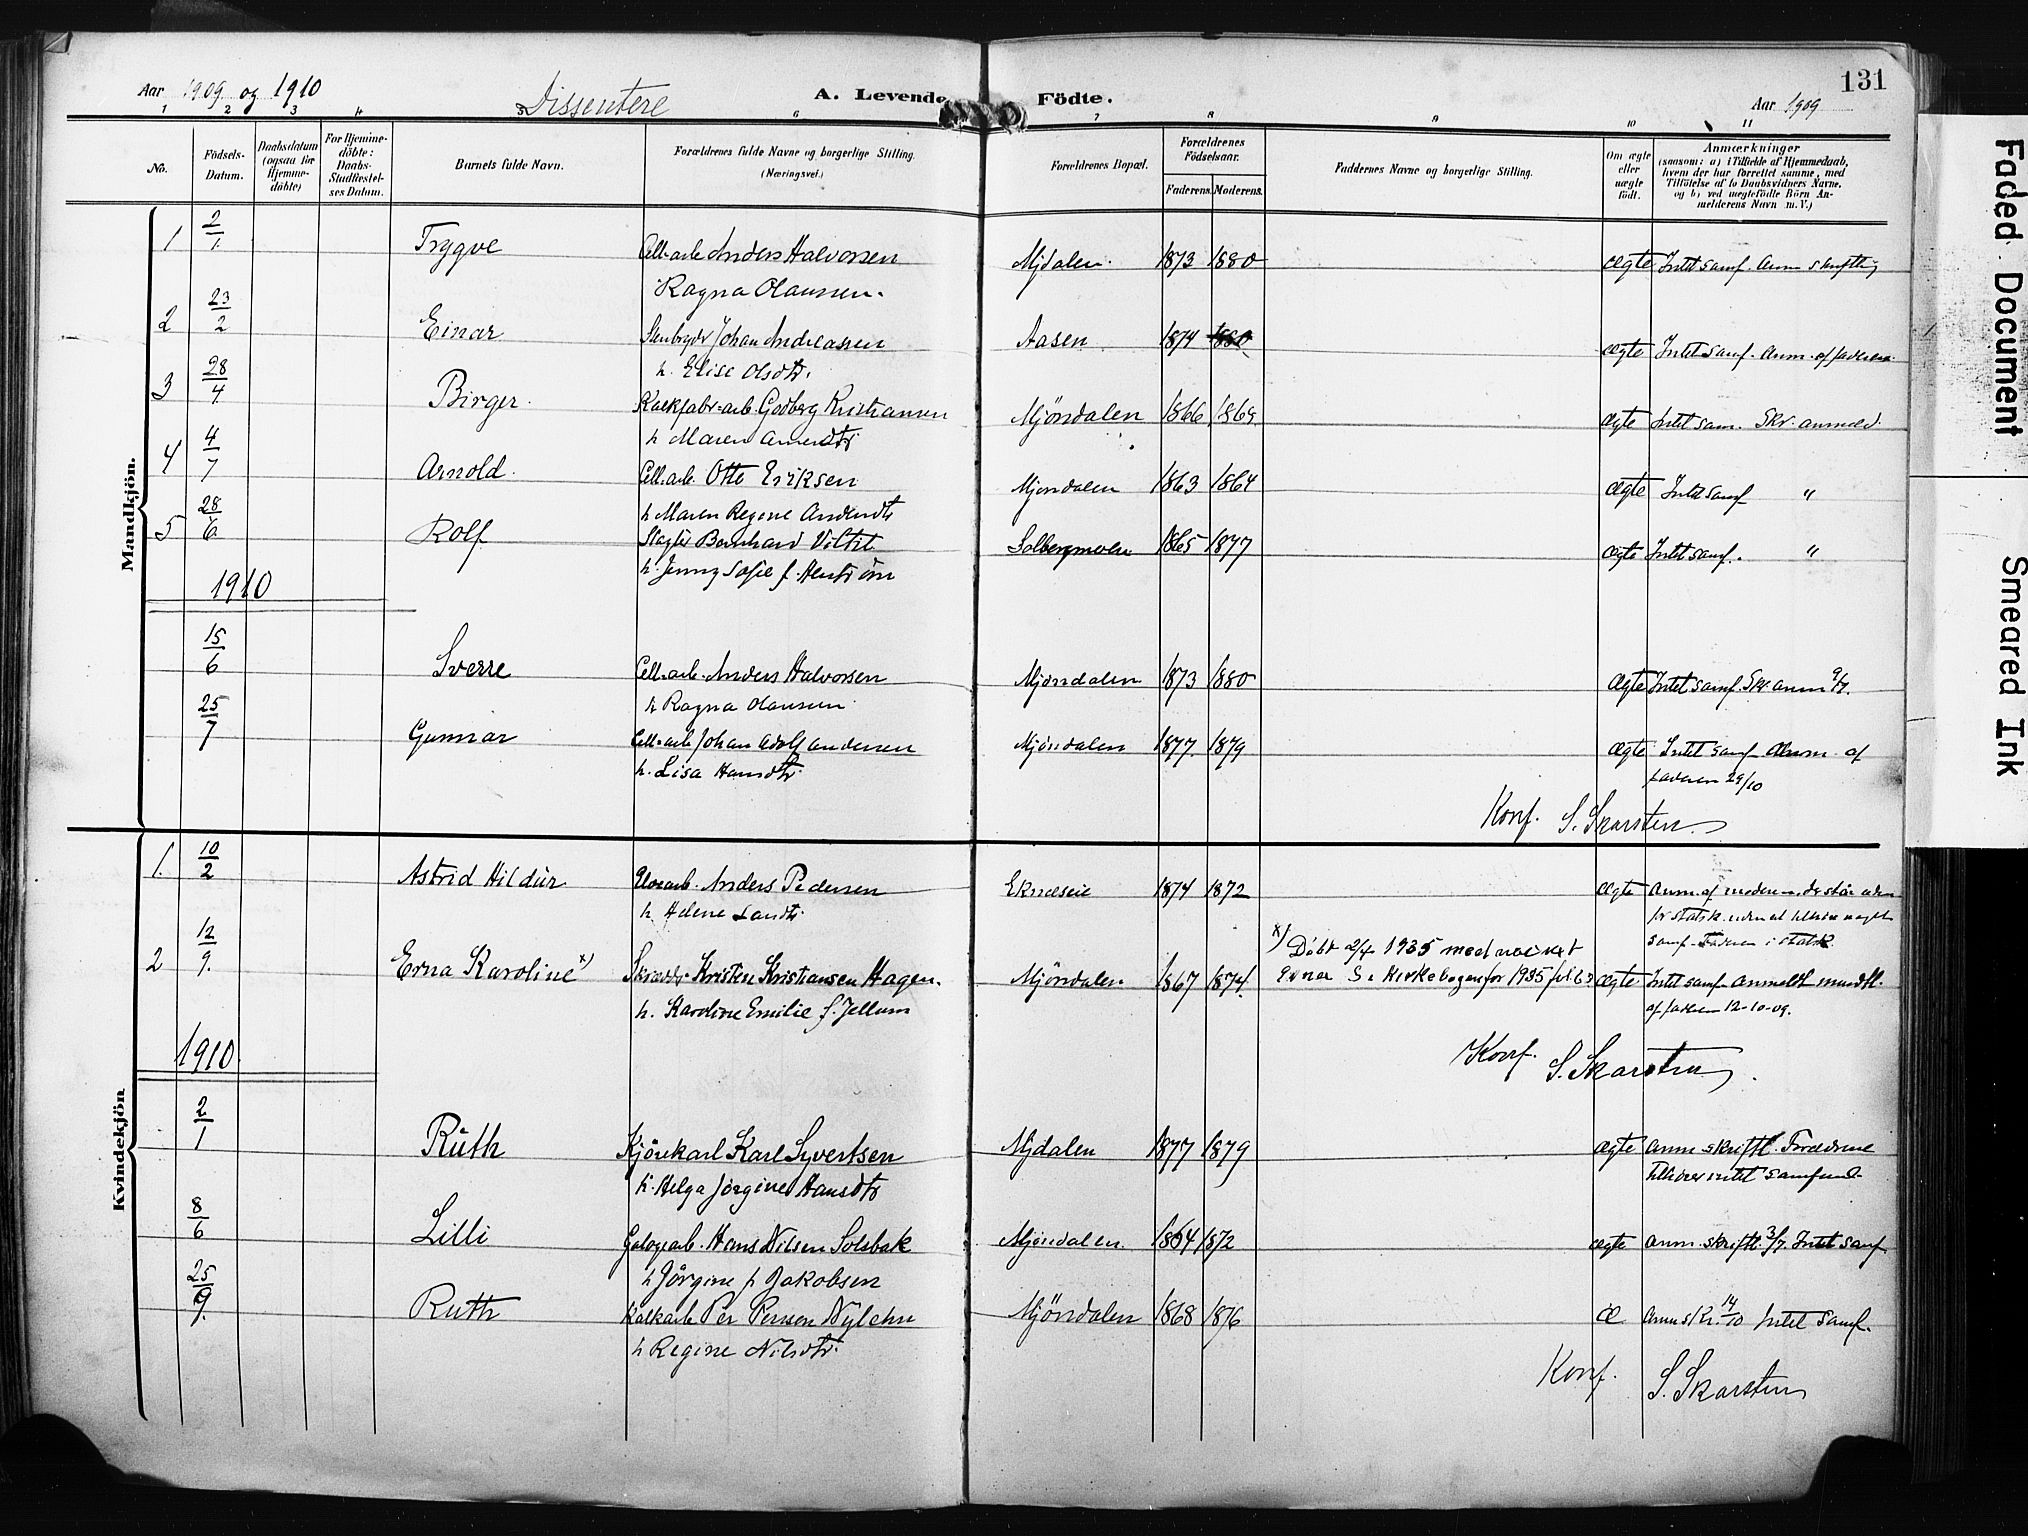 131
Aar 1909 og 1910 Dissentere A. Levende Födte. Aar 1909
1 2 3 4 5 6 7 8 9 10 11
No.
Födsels-
Datum.
Daabsdatum
(ogsaa for
Hjemme-
döbte)
For Hjemme-
döbte:
Daabs-
Stadfæstel-
ses Datum.
Barnets fulde Navn.
Forældrenes fulde Navne og borgerlige Stilling.
(Næringsvei.)
Forældrenes Bopæl.
Forældrenes
Födselsaar.
Faderens. Moderens.
Faddernes Navne og borgerlige Stilling.
Om ægte
eller
uægte
født.
Anmærkninger
(saasom: a) i Tilfælde af Hjemmedaab,
hvem der har forrettet samme, med
Tilföielse af to Daabsvidners Navne,
og b) ved uægtefödte Börn An-
melderens Navn m. V.)
Mandkjön.
1 2/1 Trygve Cell.arb Anders Halvorsen Mjdalen 1873 1880 Ægte Intet samf. Anm skriftlig
Ragna Olaussen.
2 23/2 Einar Johan Andreassen Aasen 1874 1880 Ægte Intet samf. Anm. af faderen
h. Elise Olsdtr.
3 28/4 Birger Kalkfabr.arb. Godberg Kristiansen Mjöndalen 1866 1869 Ægte Intet sam. Skr. anmeld.
h Maren
4 4/7 Arnold Cell.arb. Otto Eriksen Mjøndalen 1863 1864 Ægte Intet samf "
h Maren Regine
5 28/6 Rolf Bernhard 1865 1877 Ægte Intet samf. "
h. Jenny Sofie f.
1910
15/6 Sverre Cell.arb. Anders Halvorsen Mjøndalen 1873 1880 Ægte Intet samf. Skr. anm 9/7.
h Ragna Olausen
25/7 Gunnar Cell.arb Johan Adolf Andersen Mjøndalen 1877 1879 Ægte Intet samf Anm. af
h. Lisa Hansdtr. faderen 29/10
Konf. S. Skarsten
Kvindekjön
1. 10/2 Astrid Hildur Anders Pedersen 1874 1872 Ægte Anm. af moderen
h. Helene
samf. Faderen i statsk.
2 12/9. Erna Karoline x) Skrædder Kristen Kristiansen Hagen. Mjöndalen 1867 1874 x) Döbt 2/4 1935 med navnet
Se Kirkebogen for 1935 fol. 63 Ægte Intet samf anmeldt mundtl.
h. Karoline Emilie f. Jellum af faderen 12-10-09.
1910. Konf. S. Skarsten
2/1 Ruth Kjörekarl Karl Syvertsen Mjdalen 1877 1879 ægte anm skriftl. Forældrene
h. Helga Jörgine Hansdtr tilhører intet samfund
8/6 Lilli Hans Nilsen Solsbak Mjøndalen. 1864 1872 ægte anm. skriftl. 3/7. Intet samf
h Jörgine f Jakobsen
25/9. Ruth Kalkarb Per Persson Mjöndalen 1868 1876 æ anm skr. 14/10 Intet samf.
h Regine Nilsdtr.
Konf. S. Skarsten
Faded Document
Smeared Ink